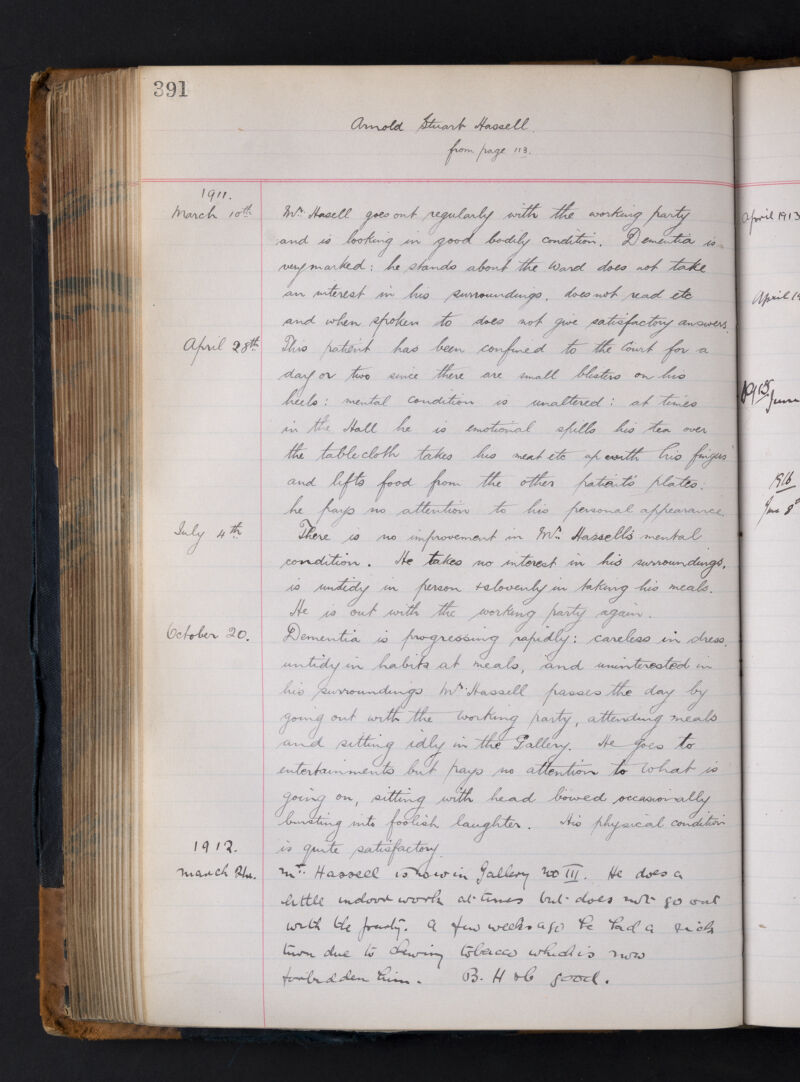 391
Arnold Stuart Hassell.
from page 113.
1911.
March 10th Mr. Hasell goes out regularly with the working party
and is looking in good bodily condition. Dementia is
very marked: he stands about the ward does not take
an interest in his surroundings, does not read etc
and when spoken to does not give satisfactory answers.
April 28th This patient has been confined to the Court for a
day or two since there are small blisters on his
heels: mental condition is unaltered: at times
in the Hall he is emotional spills his tea over
the tablecloth takes his meat etc up with his fingers
and lifts food from the other patients plates:
he pays no attention to his personal appearance.
July 4th There is no improvement in Mr. Hassell's mental
condition. He takes no interest in his surroundings,
is untidy in person & slovenly in taking his meals.
He is out with the working party again.
October 20. Dementia is progressing rapidly: careless in dress,
untidy in habits at meals, and uninterested in
his surroundings Mr. Hassell passes the day by
going out with the working party, attending meals
and sitting idly in the Gallery. He goes to
entertainments but pays no attention to what is
going on, sitting with head bowed occasionally
bursting into foolish laughter. His physical condition
is quite satisfactory.
1912.
March Mr. Hassell is now in Gallery No III. He does a
little indoor work at times but does not go out
with the party. A few weeks ago he had a sick
turn due to chewing tobacco which is now
forbidden him. B. H good.
April 1913
April 19
1915
June
1916
June 8